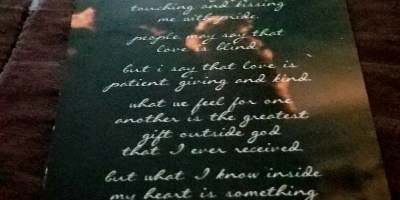 touching and kissing
me with pride.
people may say that
love is blind
but i say that love is
patient giving and kind
what we feel for one
another is the greatest
gift outside god
that I ever received
but what I know inside
my heart is something